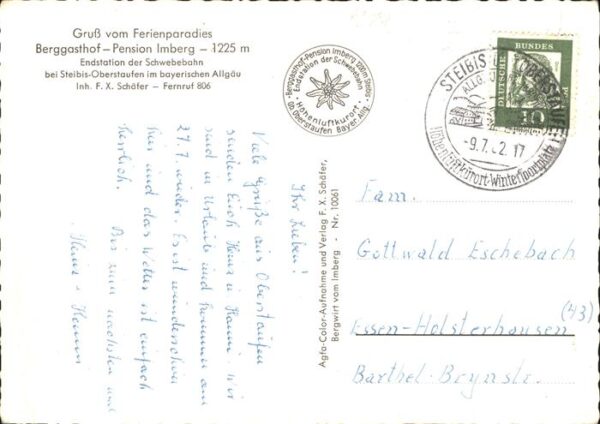 Gruß vom Ferienparadies
Berggasthof – Pension Imberg – 1225 m
Endstation der Schwebebahn
bei Steibis-Oberstaufen im bayerischen Allgäu
Inh. F. X. Schäfer – Fernruf 806
Berggasthof-Pension Imberg 1200m Steibis
Endstation der Schwebebahn
Höhenluftkurort
üb. Oberstaufen Bayer. Allg.
STEIBIS OBERSTAUFEN
ALLG.
-9.7.62.17
Höhenluftkurort-Wintersportplatz
DEUTSCHE BUNDESPOST
10
Ihr Lieben!
Viele Grüße aus Oberstaufen
senden Euch Heinz u. Hanni. Wir
sind in Urlaub und kommen am
27.7. wieder. Es ist wunderschön
hier und das Wetter ist einfach
herrlich.
Bis zum nächsten
Heinz + Hanni
Agfa-Color-Aufnahme und Verlag F. X. Schäfer,
Bergwirt vom Imberg · Nr. 10061
Fam.
Gottwald Eschebach
(43)
Essen-Holsterhausen
Barthel-Bruynstr.